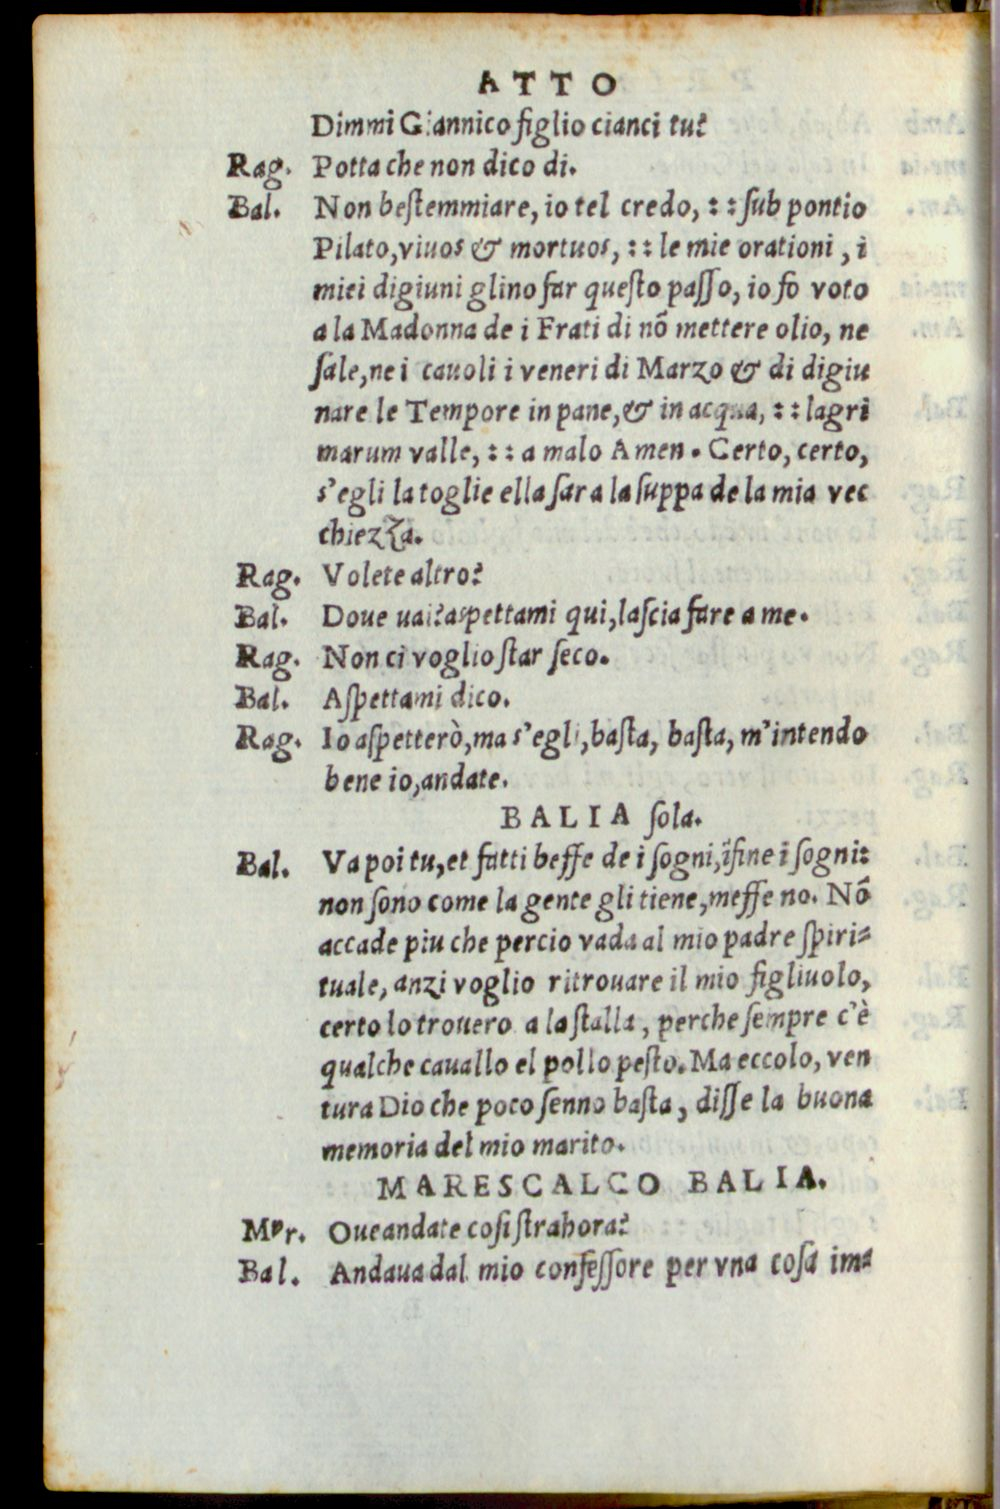 ATTO
Dimmi Giannico figlio cianci tu?
Rag. Potta che non dico di.
Bal. Non beſtemmiare, io tel credo, :: ſub pontio
Pilato, viuos & mortuos, :: le mie orationi, i
miei digiuni glino far queſto paſſo, io fo voto
a la Madonna de i Frati di nõ mettere olio, ne
ſale, ne i cauoli i veneri di Marzo & di digiu
nare le Tempore in pane, & in acqua, :: lagri
marum valle, :: a malo Amen. Certo, certo,
s'egli la toglie ella ſara la ſuppa de la mia vec
chiezza.
Rag. Volete altro?
Bal. Doue uai? aspettami qui, laſcia fare a me.
Rag. Non ci voglio ſtar ſeco.
Bal. Aſpettami dico.
Rag. Io aſpetterò, ma s'egli, baſta, baſta, m'intendo
bene io, andate.
BALIA ſola.
Bal. Va poi tu, et fatti beffe de i ſogni, ĩfine i ſogni:
non ſono come la gente gli tiene, meffe no. Nõ
accade piu che percio vada al mio padre ſpiri=
tuale, anzi voglio ritrouare il mio figliuolo,
certo lo trouero a la ſtalla, perche ſempre c'è
qualche cauallo el pollo peſto. Ma eccolo, ven
tura Dio che poco ſenno baſta, diſſe la buona
memoria del mio marito.
MARESCALCO BALIA.
Mar. Oue andate coſi ſtrahora?
Bal. Andaua dal mio confeſſore per vna coſa im=